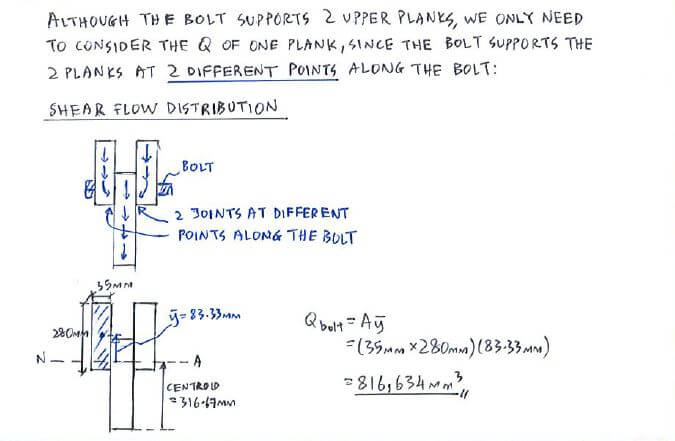 ALTHOUGH THE BOLT SUPPORTS 2 UPPER PLANKS, WE ONLY NEED
TO CONSIDER THE Q OF ONE PLANK, SINCE THE BOLT SUPPORTS THE
2 PLANKS AT 2 DIFFERENT POINTS ALONG THE BOLT:
SHEAR FLOW DISTRIBUTION
BOLT
2 JOINTS AT DIFFERENT
POINTS ALONG THE BOLT
35mm
280mm
ȳ=83.33mm
N
A
CENTROID
=316.67mm
Qbolt = Aȳ
=(35mm×280mm)(83.33mm)
=816,634mm³